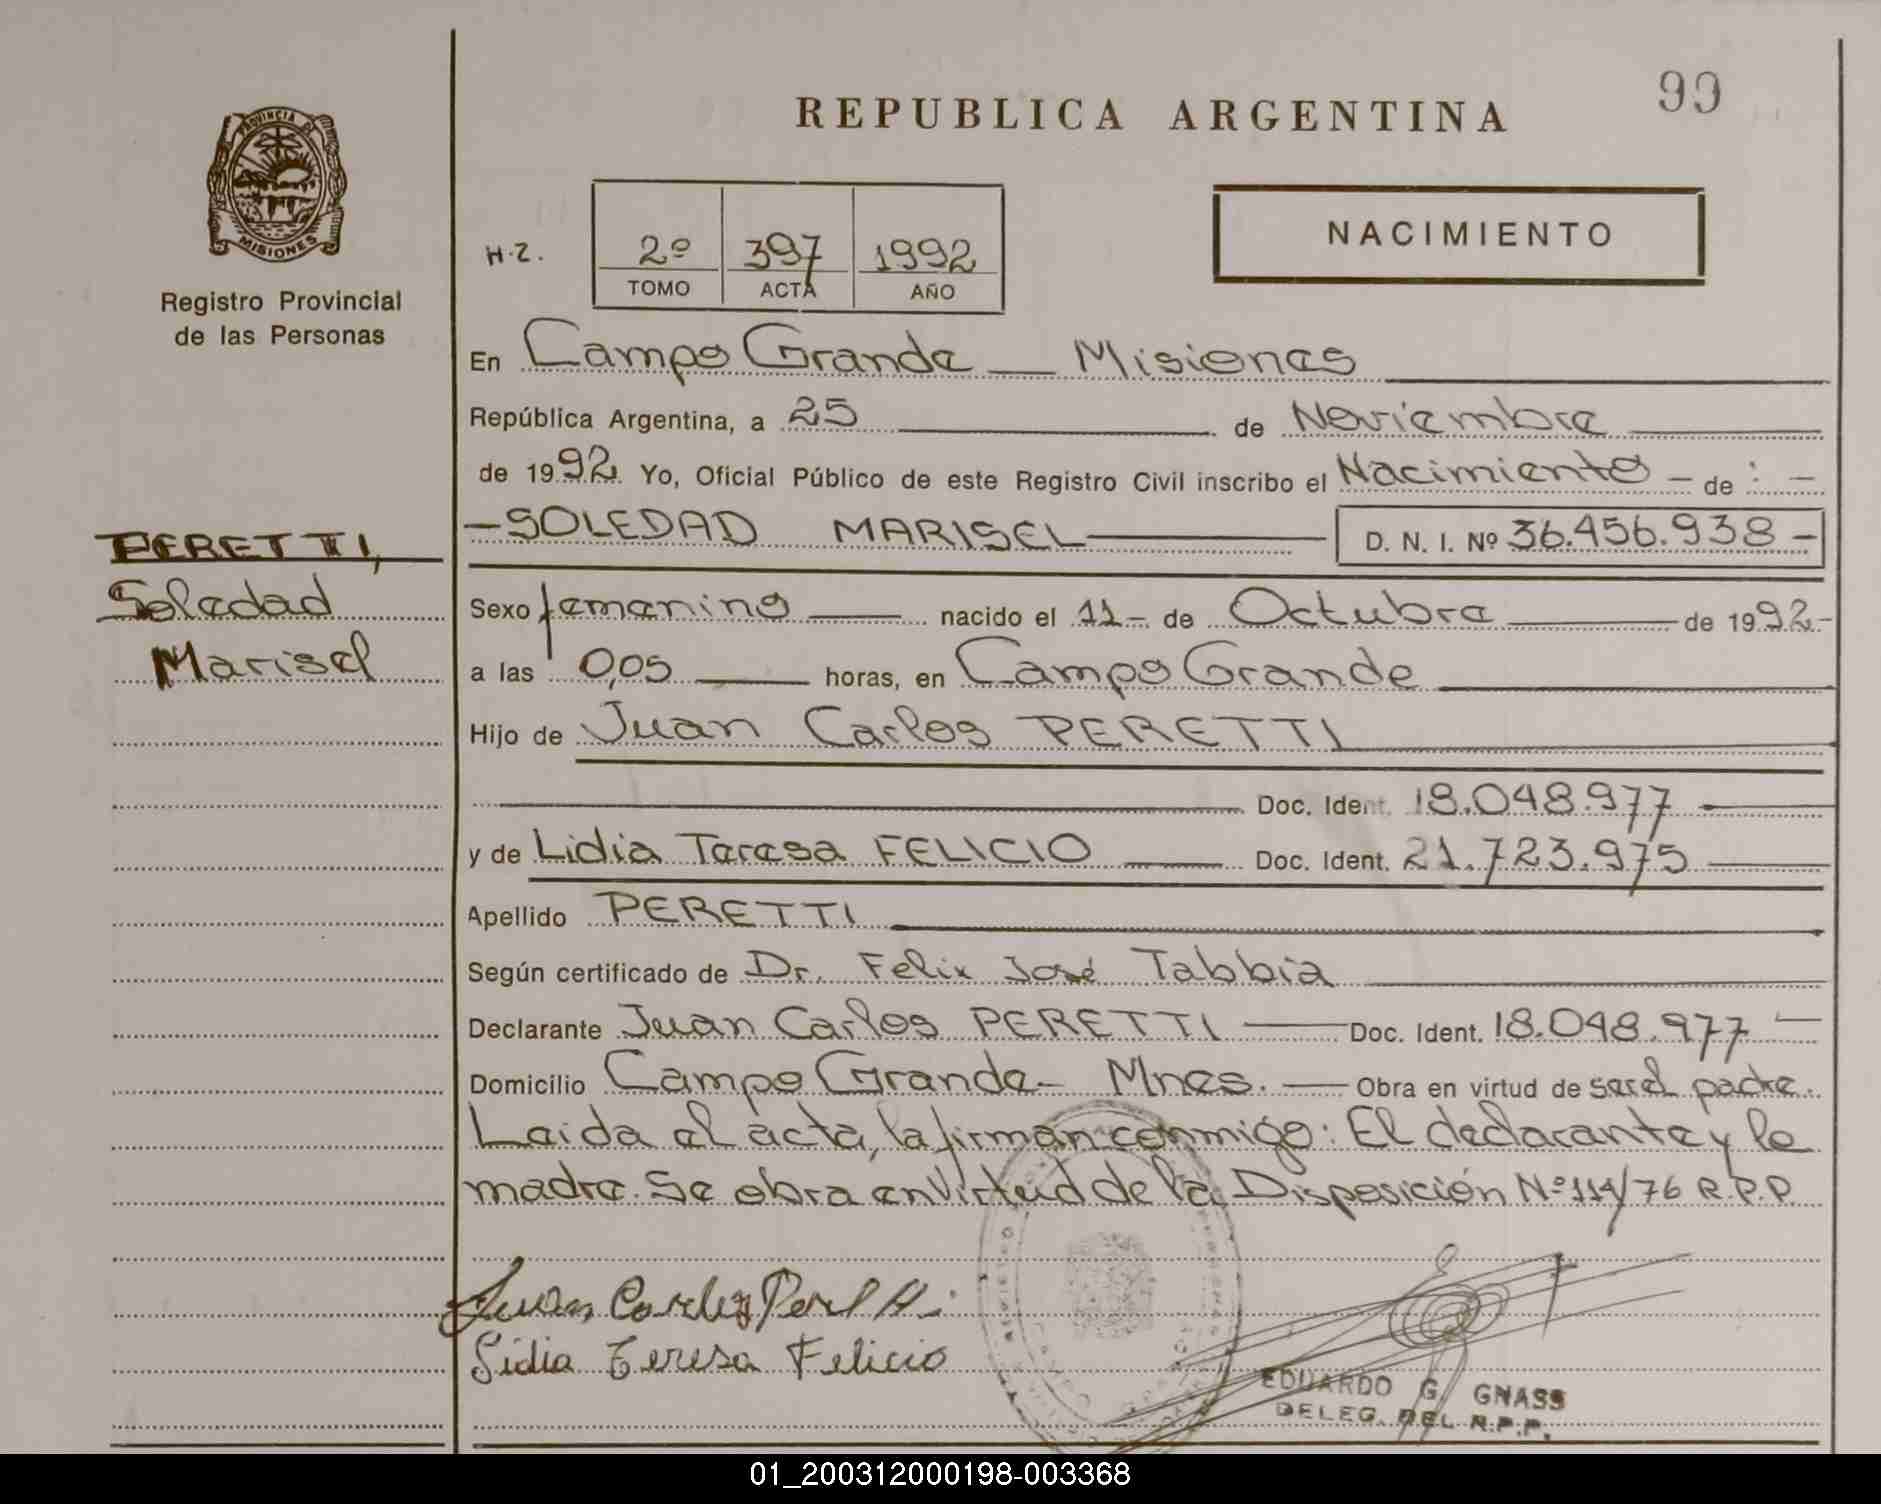 99
REPUBLICA ARGENTINA
PROVINCIA DE
MISIONES
Registro Provincial
de las Personas
H.Z.
2º 397 1992
TOMO ACTA AÑO
NACIMIENTO
En Campo Grande — Misiones
República Argentina, a 25 de Noviembre
de 1992. Yo, Oficial Público de este Registro Civil inscribo el Nacimiento - de : -
PERETTI,
Soledad
Marisel
- SOLEDAD MARISEL — D. N. I. Nº 36.456.938 -
Sexo femenino — nacido el 11 - de Octubre — de 1992.-
a las 0,05 — horas, en Campo Grande
Hijo de Juan Carlos PERETTI
Doc. Ident. 18.048.977
y de Lidia Teresa FELICIO — Doc. Ident. 21.723.975
Apellido PERETTI
Según certificado de Dr. Felix José Tabbia
Declarante Juan Carlos PERETTI — Doc. Ident. 18.048.977 -
Domicilio Campo Grande - Mnes. — Obra en virtud de ser el padre.
Leida el acta, la firman conmigo: El declarante y la
madre. Se obra en virtud de la Disposición Nº 114/76 R.P.P.
Juan Carlos Peretti
Lidia Teresa Felicio
EDUARDO G. GNASS
DELEG. DEL R.P.P.
01_200312000198-003368